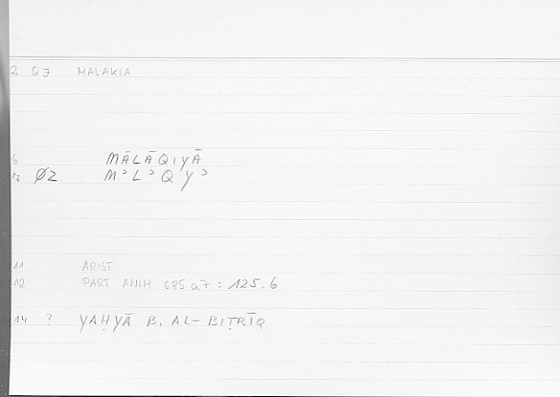 2 QJ MALAKIA
6 MĀLĀQIYĀ
7 ØZ MʾLʾQYʾ
11 ARIST
12 PART ANIM 685 a7 : 125.6
14 ? YAḤYĀ B. AL-BIṬRĪQ